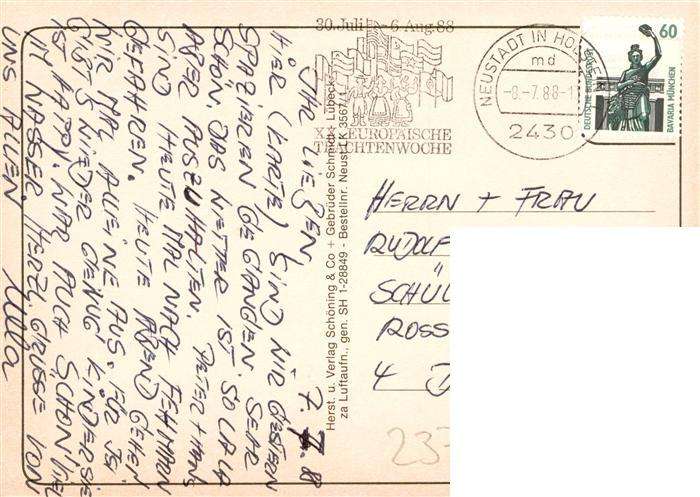 30. Juli – 6. Aug. 88
XI. EUROPÄISCHE
TRACHTENWOCHE
NEUSTADT IN HOLST
md
-8.-7.88-1
2430
60
DEUTSCHE BUNDESPOST
BAVARIA MÜNCHEN
7. 7. 88
IHR LIEBEN!
HIER (KARTE) SIND WIR GESTERN
SPAZIEREN GEGANGEN. SEHR
SCHÖN DAS WETTER IST SO LALA
ABER AUSZUHALTEN. PETER + HANS
SIND HEUTE MAL NACH FEHMARN
GEFAHREN. HEUTE ABEND GEHEN
WIR MAL ALLEINE AUS. FÜR
GIBT'S WIEDER GENUG KINDER. SIE
IST HAPPY. WAR AUCH SCHON
IM WASSER. HERZL. GRÜSSE VON
UNS ALLEN
Herst. u. Verlag Schöning & Co + Gebrüder Schmidt, Lübeck
za Luftaufn., gen. SH 1-28849 - Bestellnr. Neust LK 3567/1
HERRN + FRAU
RUDOLF
SCHÜ
ROSS
4 D
237